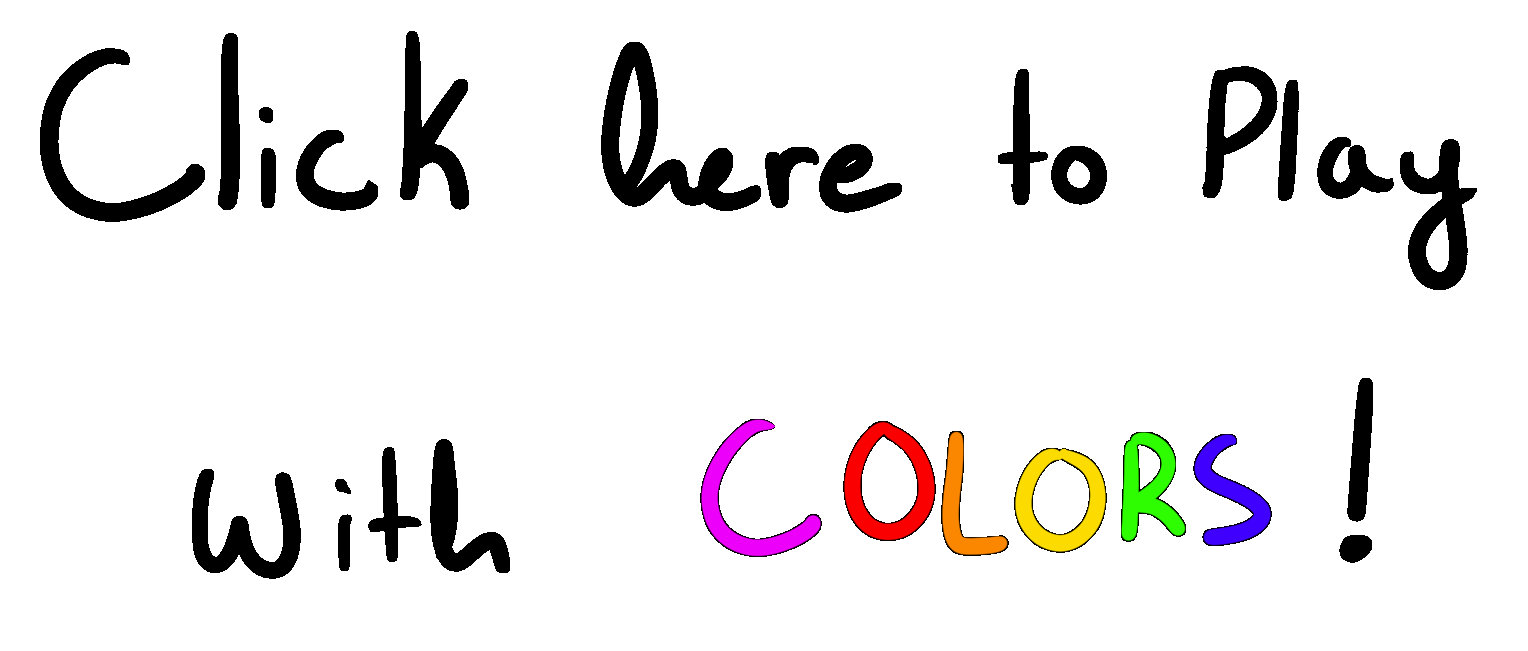 Click here to Play
With COLORS!